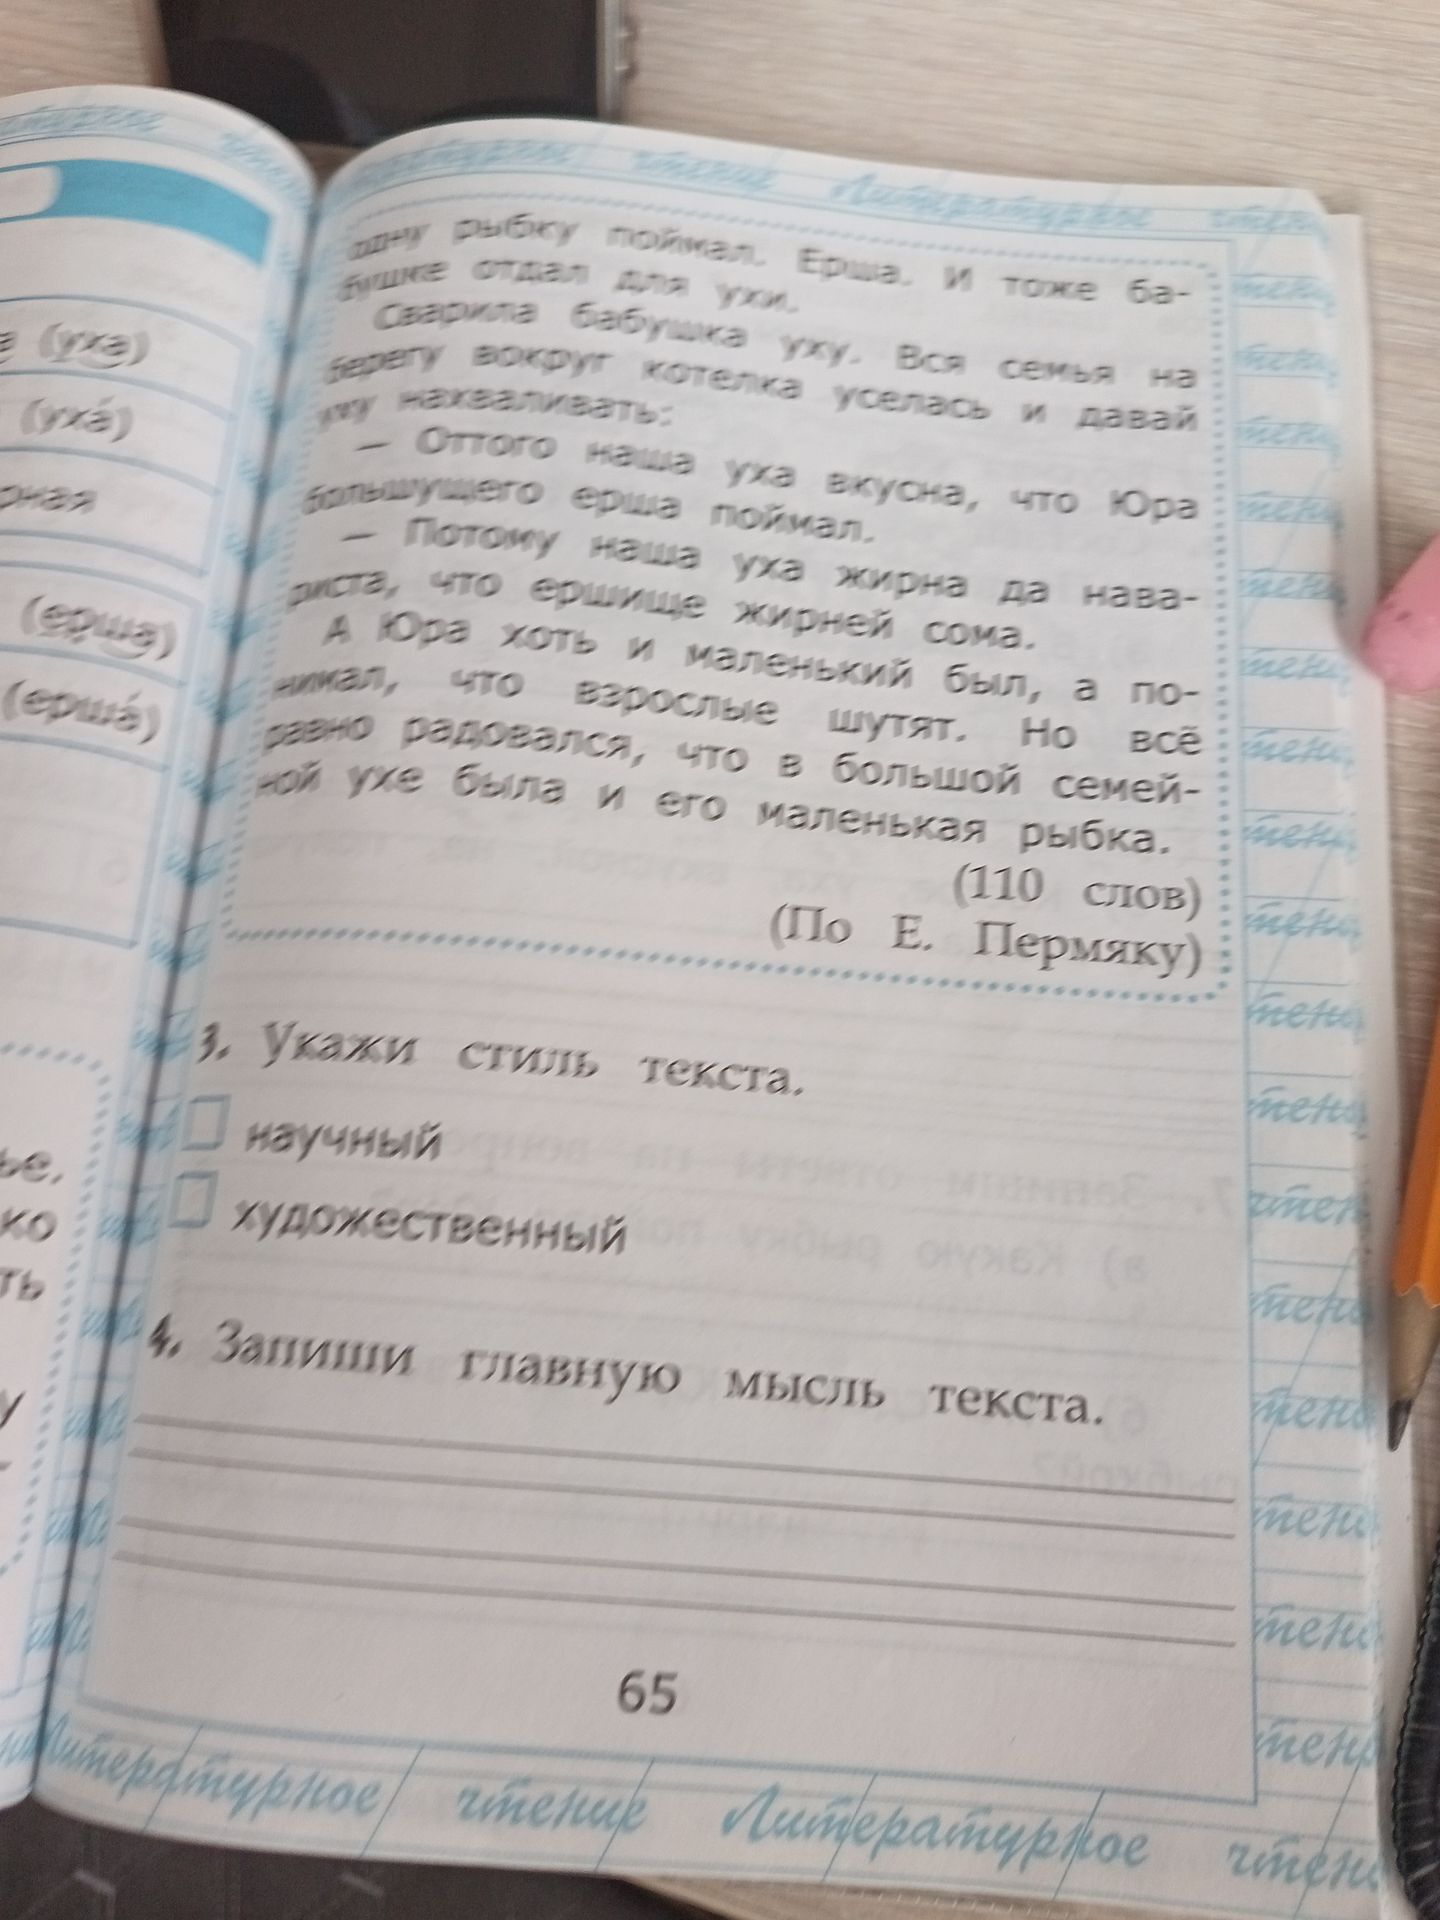 (уха)
(уха́)
рная
(ерша)
(ерша́)
ье.
ко
ть
у
Литературное чтение Литературное чтен
одну рыбку поймал. Ерша. И тоже ба-
бушке отдал для ухи.
Сварила бабушка уху. Вся семья на
берегу вокруг котелка уселась и давай
уху нахваливать:
— Оттого наша уха вкусна, что Юра
большущего ерша поймал.
— Потому наша уха жирна да нава-
риста, что ершище жирней сома.
А Юра хоть и маленький был, а по-
нимал, что взрослые шутят. Но всё
равно радовался, что в большой семей-
ной ухе была и его маленькая рыбка.
(110 слов)
(По Е. Пермяку)
3. Укажи стиль текста.
научный
художественный
4. Запиши главную мысль текста.
65
Литературное чтение Литературное чтен